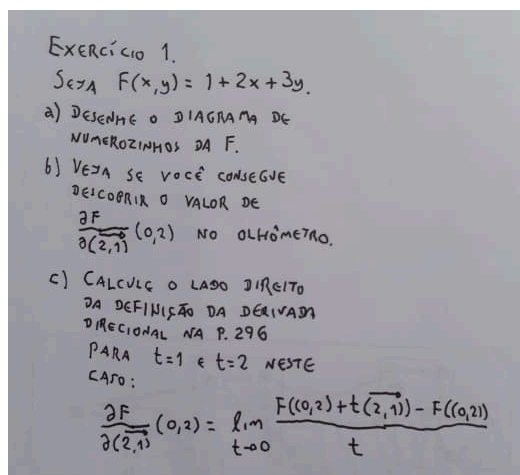 EXERCÍCIO 1.
SEJA F(x,y) = 1 + 2x + 3y.
a) DESENHE O DIAGRAMA DE
NUMEROZINHOS DA F.
b) VEJA SE VOCÊ CONSEGUE
DESCOBRIR O VALOR DE
∂F/∂(2,1)→ (0,2) NO OLHÔMETRO.
c) CALCULE O LADO DIREITO
DA DEFINIÇÃO DA DERIVADA
DIRECIONAL NA P. 296
PARA t=1 E t=2 NESTE
CASO:
∂F/∂(2,1)→ (0,2) = lim t→0 F((0,2)+t(2,1)→) - F((0,2)) / t